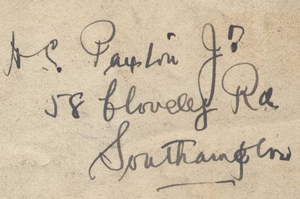 H. S. Paxton Jr
58 Clovelly Rd
Southampton